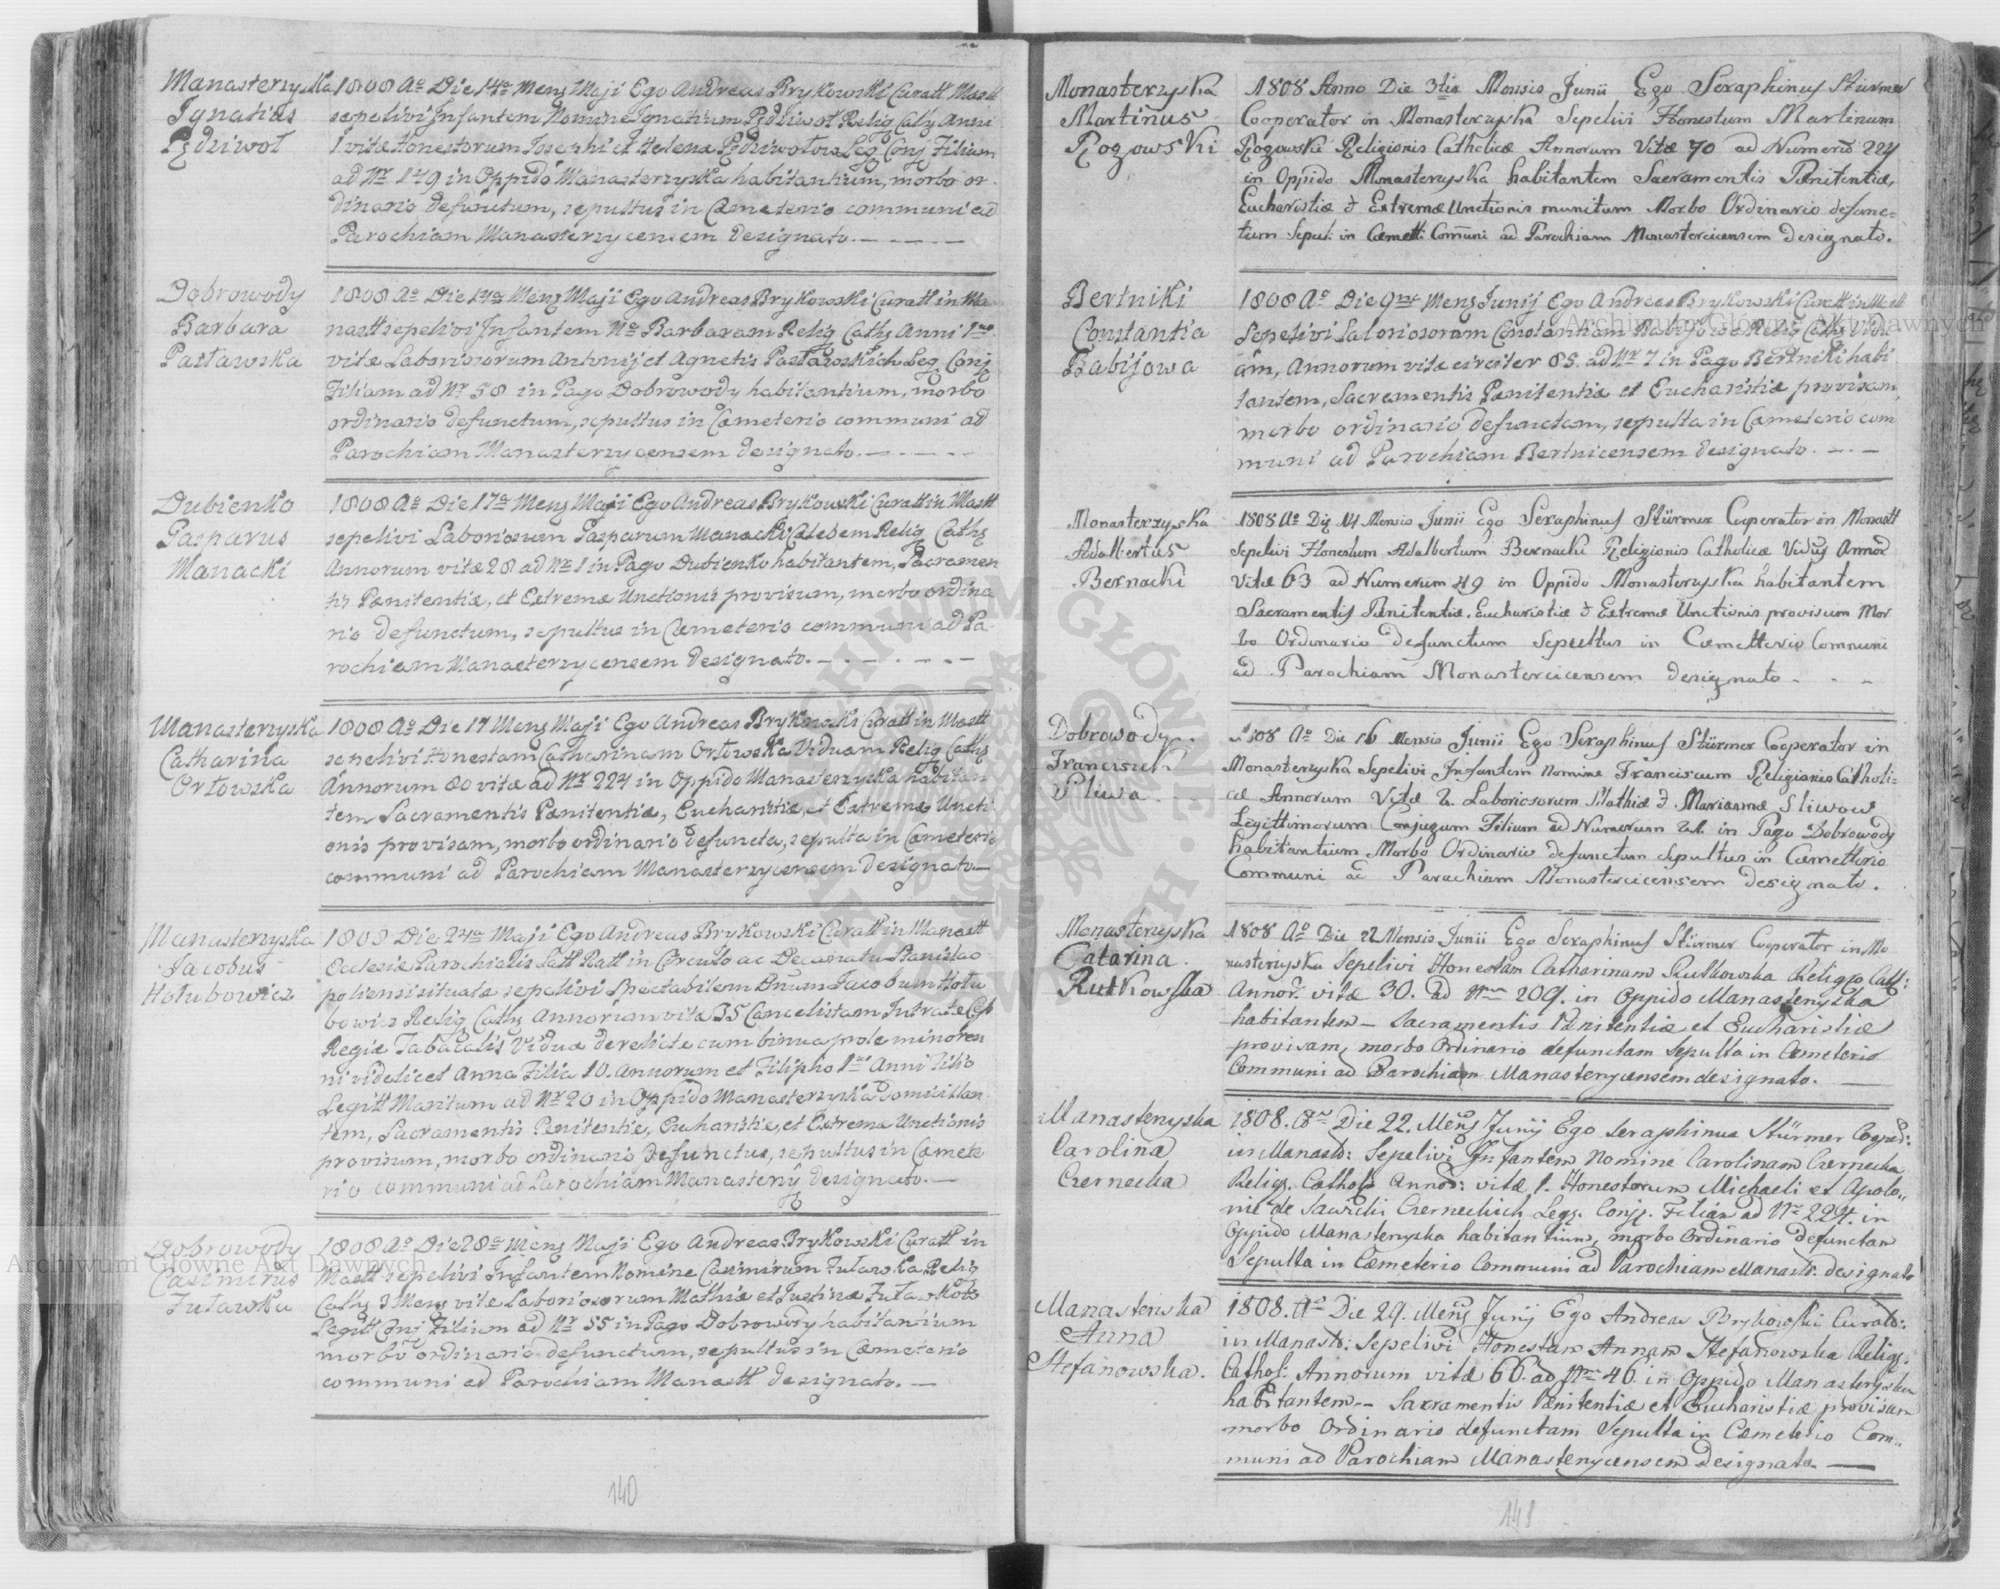 Manasterzyska
Ignatius
Pędziwol
1808 Aº Die 14ª Mens Maji Ego Andreas Brykowski Curatt Mastt
sepelivi Infantem Nomine Ignatium Pędziwol Relig Cath Anni
1 vitæ Honestorum Josephi et Helenæ Pędziwolow Leg Conj Filium
ad Nr 179 in Oppido Manasterzyska habitantium, morbo or
dinario defunctum, sepultus in Cæmeterio communi ad
Parochiam Manasterzycensem designato.
Dobrowody
Barbara
Pasławska
1808 Aº Die 17ª Mens Maji Ego Andreas Brykowski Curatt in Ma
nastt sepelivi Infantem Nº Barbaram Relig Cath Anni 1
vitæ Laboriosorum Antonij et Agnetis Pasławskich Leg Conj
Filiam ad Nr 58 in Pago Dobrowody habitantium, morbo
ordinario defunctum, sepultus in Cæmeterio communi ad
Parochiam Manasterzycensem designato.
Dubienko
Gasparus
Manacki
1808 Aº Die 17ª Mens Maji Ego Andreas Brykowski Curatt in Mastt
sepelivi Laboriosum Gasparum Manacki Cælebem Relig Cath
Annorum vitæ 28 ad Nr 1 in Pago Dubienko habitantem, Sacramen
tis Pænitentiæ, et Extremæ Unctionis provisum, morbo ordina
rio defunctum, sepultus in Cæmeterio communi ad Pa
rochiam Manasterzycensem designato.
Manasterzyska
Catharina
Orłowska
1808 Aº Die 17 Mens Maji Ego Andreas Brykowski Curatt in Mastt
sepelivi Honestam Catharinam Orłowska Viduam Relig Cath
Annorum 80 vitæ ad Nr 224 in Oppido Manasterzyska habitan
tem Sacramentis Pænitentiæ, Eucharistiæ, et Extremæ Uncti
onis provisam, morbo ordinario defuncta, sepulta in Cæmeterio
communi ad Parochiam Manasterzycensem designato.
Manasterzyska
Jacobus
Hołubowicz
1808 Die 24ª Maji Ego Andreas Brykowski Curatt in Manastt
Ecclesiæ Parochialis in Circulo ac Decanatu Stanislao
poliensi situatæ sepelivi Spectabilem Dnum Jacobum Hołu
bowicz Relig Cath Annorum vitæ 35 Cancelistam
Regiæ Tabacalis Viduæ derelictæ cum bina prole minoren
ni videlicet Anna Filia 10. Annorum et Filipho 1 Anni Filio
Legitt Maritum ad Nr 20 in Oppido Manasterzyska domicilian
tem, Sacramentis Pænitentiæ, Eucharistiæ, et Extremæ Unctionis
provisum, morbo ordinario defunctus, sepultus in Cæmete
rio communi ad Parochiam Manastery designato.
Dobrowody
Casimirus
Tuławka
1808 Aº Die 28ª Mens Maji Ego Andreas Brykowski Curatt in
Mastt sepelivi Infantem Nomine Casimirum Tuławka Relig
Cath 3 Mens vitæ Laboriosorum Mathiæ et Justinæ
Legitt Conj Filium ad Nr 55 in Pago Dobrowody habitantium
morbo ordinario defunctum, sepultus in Cæmeterio
communi ad Parochiam Manastt designato.
140
Monasterzyska
Martinus
Rogowski
1808 Anno Die 3tia Mensis Junii Ego Seraphinus Stürmer
Cooperator in Monasterzyska Sepelivi Honestum Martinum
Rogowski Religionis Catholicæ Annorum Vitæ 70 ad Numerũ 224
in Oppido Monasterzyska habitantem Sacramentis Pænitentiæ,
Eucharistiæ & Extremæ Unctionis munitum Morbo Ordinario defunc=
tum Sepul: in Cæmett: Comuni ad Parochiam Monastercicensem designato.
Bertniki
Constantia
Babijowa
1808 Aº Die 9na Mens Junij Ego Andreas Brykowski Curatt in Mastt
Sepelivi Laboriosoram Constantiam Babijowa Relig Cath Vidu
am, Annorum vitæ circiter 85 ad Nr 7 in Pago Bertniki habi
tantem, Sacramentis Pænitentiæ et Eucharistiæ provisam,
morbo ordinario defunctam, sepulta in Cæmeterio com
muni ad Parochiam Bertnicensem designato.
Monasterzyska
Adalbertus
Bernacki
1808 Aº Die 14 Mensis Junii Ego Seraphinus Stürmer Cooperator in Monastt
Sepelivi Honestum Adalbertum Bernacki Religionis Catholicæ Vidus Annor
Vitæ 63 ad Numerum 49 in Oppido Monasterzyska habitantem
Sacramentis Pænitentiæ, Eucharistiæ & Extremæ Unctionis provisum Mor
bo Ordinario defunctum Sepultus in Cæmetterio Communi
ad Parochiam Monastercicensem designato
Dobrowody
Franciszek
Sliwa
1808 Aº Die 16 Mensis Junii Ego Seraphinus Stürmer Cooperator in
Monasterzyska Sepelivi Infantem Nomine Franciscum Religionis Catholi=
cæ Annorum Vitæ 2. Laboriosorum Mathiæ & Mariannæ Sliwow
Legittimorum Conjugum Filium ad Numerum 21. in Pago Dobrowody
habitantium Morbo Ordinario defunctum Sepultus in Cæmetterio
Communi ad Parochiam Monastercicensem designato.
Monasterzyska
Catarina
Rutkowska
1808 Aº Die 22 Mensis Junii Ego Seraphinus Stürmer Cooperator in Mo
nasterzyska Sepelivi Honestam Catharinam Rutkowska Religio Cath:
Annor. vitæ 30. ad Nrum 209. in Oppido Manasterzyska
habitantem Sacramentis Pænitentiæ et Eucharistiæ
provisam, morbo Ordinario defunctam Sepulta in Cæmeterio
Communi ad Parochiam Manasterzycensem designato.
Manasterzyska
Carolina
Czernecka
1808. Aº Die 22. Mens Junij Ego Seraphinus Stürmer Cooper:
in Manast: Sepelivi Infantem Nomine Carolinam Czernecka
Relig. Cathol. Annor: vitæ 1. Honestorum Michaeli et Apolo
niæ de Sawicki Czerneckich Leg. Conj. Filiam ad Nr 224. in
Oppido Manasterzyska habitantium, morbo Ordinario defunctam
Sepulta in Cæmeterio Communi ad Parochiam Manast: designato
Manasterzyska
Anna
Stefanowska.
1808. Aº Die 29. Mens Junij Ego Andreas Brykowski Curat:
in Manast: Sepelivi Honestam Annam Stefanowska Relig:
Cathol. Annorum vitæ 66. ad Nrum 46. in Oppido Manasterzyska
habitantem Sacramentis Pænitentiæ et Eucharistiæ provisam
morbo Ordinario defunctam Sepulta in Cæmeterio Com
muni ad Parochiam Manasterzycensem designato.
141
Archiwum Główne Akt Dawnych
Archiwum Główne Akt Dawnych
ARCHIWUM GŁÓWNE